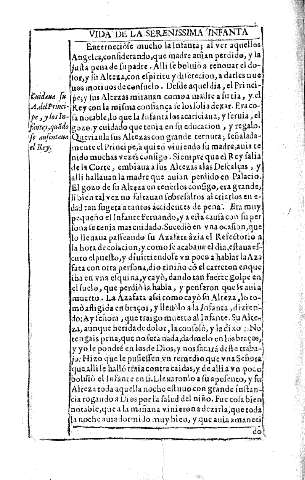 VIDA DE LA SERENISSIMA INFANTA
Enterneciose mucho la Infanta; al ver aquellos
Angeles, considerando, que madre auian perdido, y la
justa pena de su padre. Alli se boluiò a renouar el do-
lor, y su Alteza, con espiritu y discrecion, a darles nue
uos motiuos de consuelo. Desde aquel dia, el Princi-
pe, y los Alteças mirauan como a madre a su tia, y el
Rey con la misma confiança se los solia dexar. Era co-
sa notable, lo que la Infanta los acariciaua, y seruia, el
gozo y cuidado que tenia en su educacion, y regalo.
Querianla sus Altezas con grande ternura, señalada-
mente el Principe, a quien viuiendo su madre, auia te-
nido muchas vezes consigo. Siempre que el Rey salia
de la Corte, embiaua a sus Altezas a las Descalças, y
alli hallauan la madre que auian perdido en Palacio.
El gozo de su Alteza en tenerlos consigo, era grande,
si bien tal vez no faltauan sobresaltos al criarlos en e-
dad tan sugeta a tantos accidentes de pena. Era muy
pequeño el Infante Fernando, y a esta causa con su per
sona se tenia mas cuidado. Sucediò en vna ocasion, que
lo lleuaua paseando su Azafata àzia el Refectorio a
la hora de colacion, y como se acabaua el dia, estaua es-
curo el puesto, y diuirtiendose vn poco a hablar la Aza
fata con otra persona, dio el niño cõ el carreton en que
iba en vna esquina, y cayò, dando tan fuerte golpe en
el suelo, que perdiò la habla, y pensaron que se auia
muerto. La Azafata assi como cayò su Alteza, lo to-
mò afligida en braços, y lleuòlo a la Infanta, dizien-
do; Ay señora, que traigo muerto al Infante. Su Alte-
za, aunque herida de dolor, la consolò, y lo dixo: No
tengais pena, que no serà nada, dadmelo en los braços,
y yo le pondrè en los de Dios, y nos sacarà deste traba-
jo: Hizo que le pusiessen vn remedio que vna Señora
que alli se hallò traia contra caidas, y de alli a vn poco
boluiò el Infante en si. Lleuaronlo a su aposento, y su
Alteza toda aquella noche estuuo con grande instan-
cia rogando a Dios por la salud del niño. Fue cosa bien
notable, que a la mañana vinieron a dezirla, que toda
la noche auia dormido muy bien, y que auia amaneci
do
Cuidaua su
A. del Princi-
pe, y los In-
fantes, quãdo
se ausentaua
el Rey.